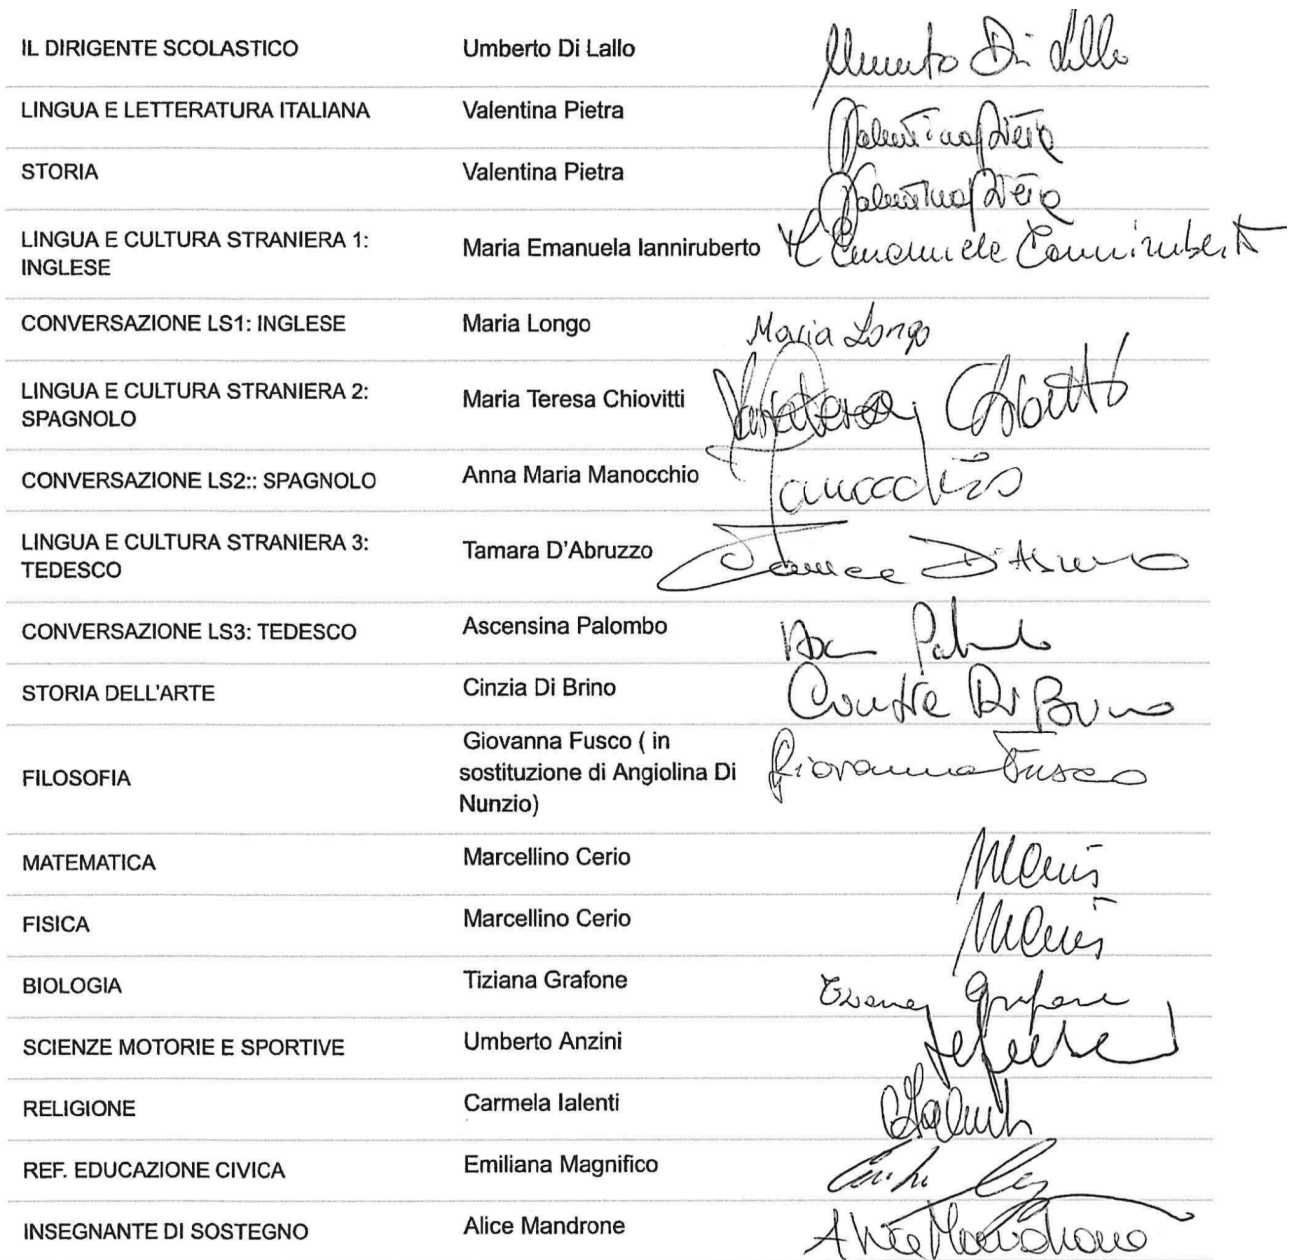 IL DIRIGENTE SCOLASTICO Umberto Di Lallo Umberto Di Lallo
LINGUA E LETTERATURA ITALIANA Valentina Pietra Valentina Pietra
STORIA Valentina Pietra Valentina Pietra
LINGUA E CULTURA STRANIERA 1:
INGLESE Maria Emanuela Ianniruberto M Emanuela Ianniruberto
CONVERSAZIONE LS1: INGLESE Maria Longo Maria Longo
LINGUA E CULTURA STRANIERA 2:
SPAGNOLO Maria Teresa Chiovitti
CONVERSAZIONE LS2:: SPAGNOLO Anna Maria Manocchio
LINGUA E CULTURA STRANIERA 3:
TEDESCO Tamara D'Abruzzo
CONVERSAZIONE LS3: TEDESCO Ascensina Palombo
STORIA DELL'ARTE Cinzia Di Brino
FILOSOFIA Giovanna Fusco ( in
sostituzione di Angiolina Di
Nunzio) Giovanna Fusco
MATEMATICA Marcellino Cerio
FISICA Marcellino Cerio
BIOLOGIA Tiziana Grafone
SCIENZE MOTORIE E SPORTIVE Umberto Anzini
RELIGIONE Carmela Ialenti
REF. EDUCAZIONE CIVICA Emiliana Magnifico
INSEGNANTE DI SOSTEGNO Alice Mandrone Alice Mandrone